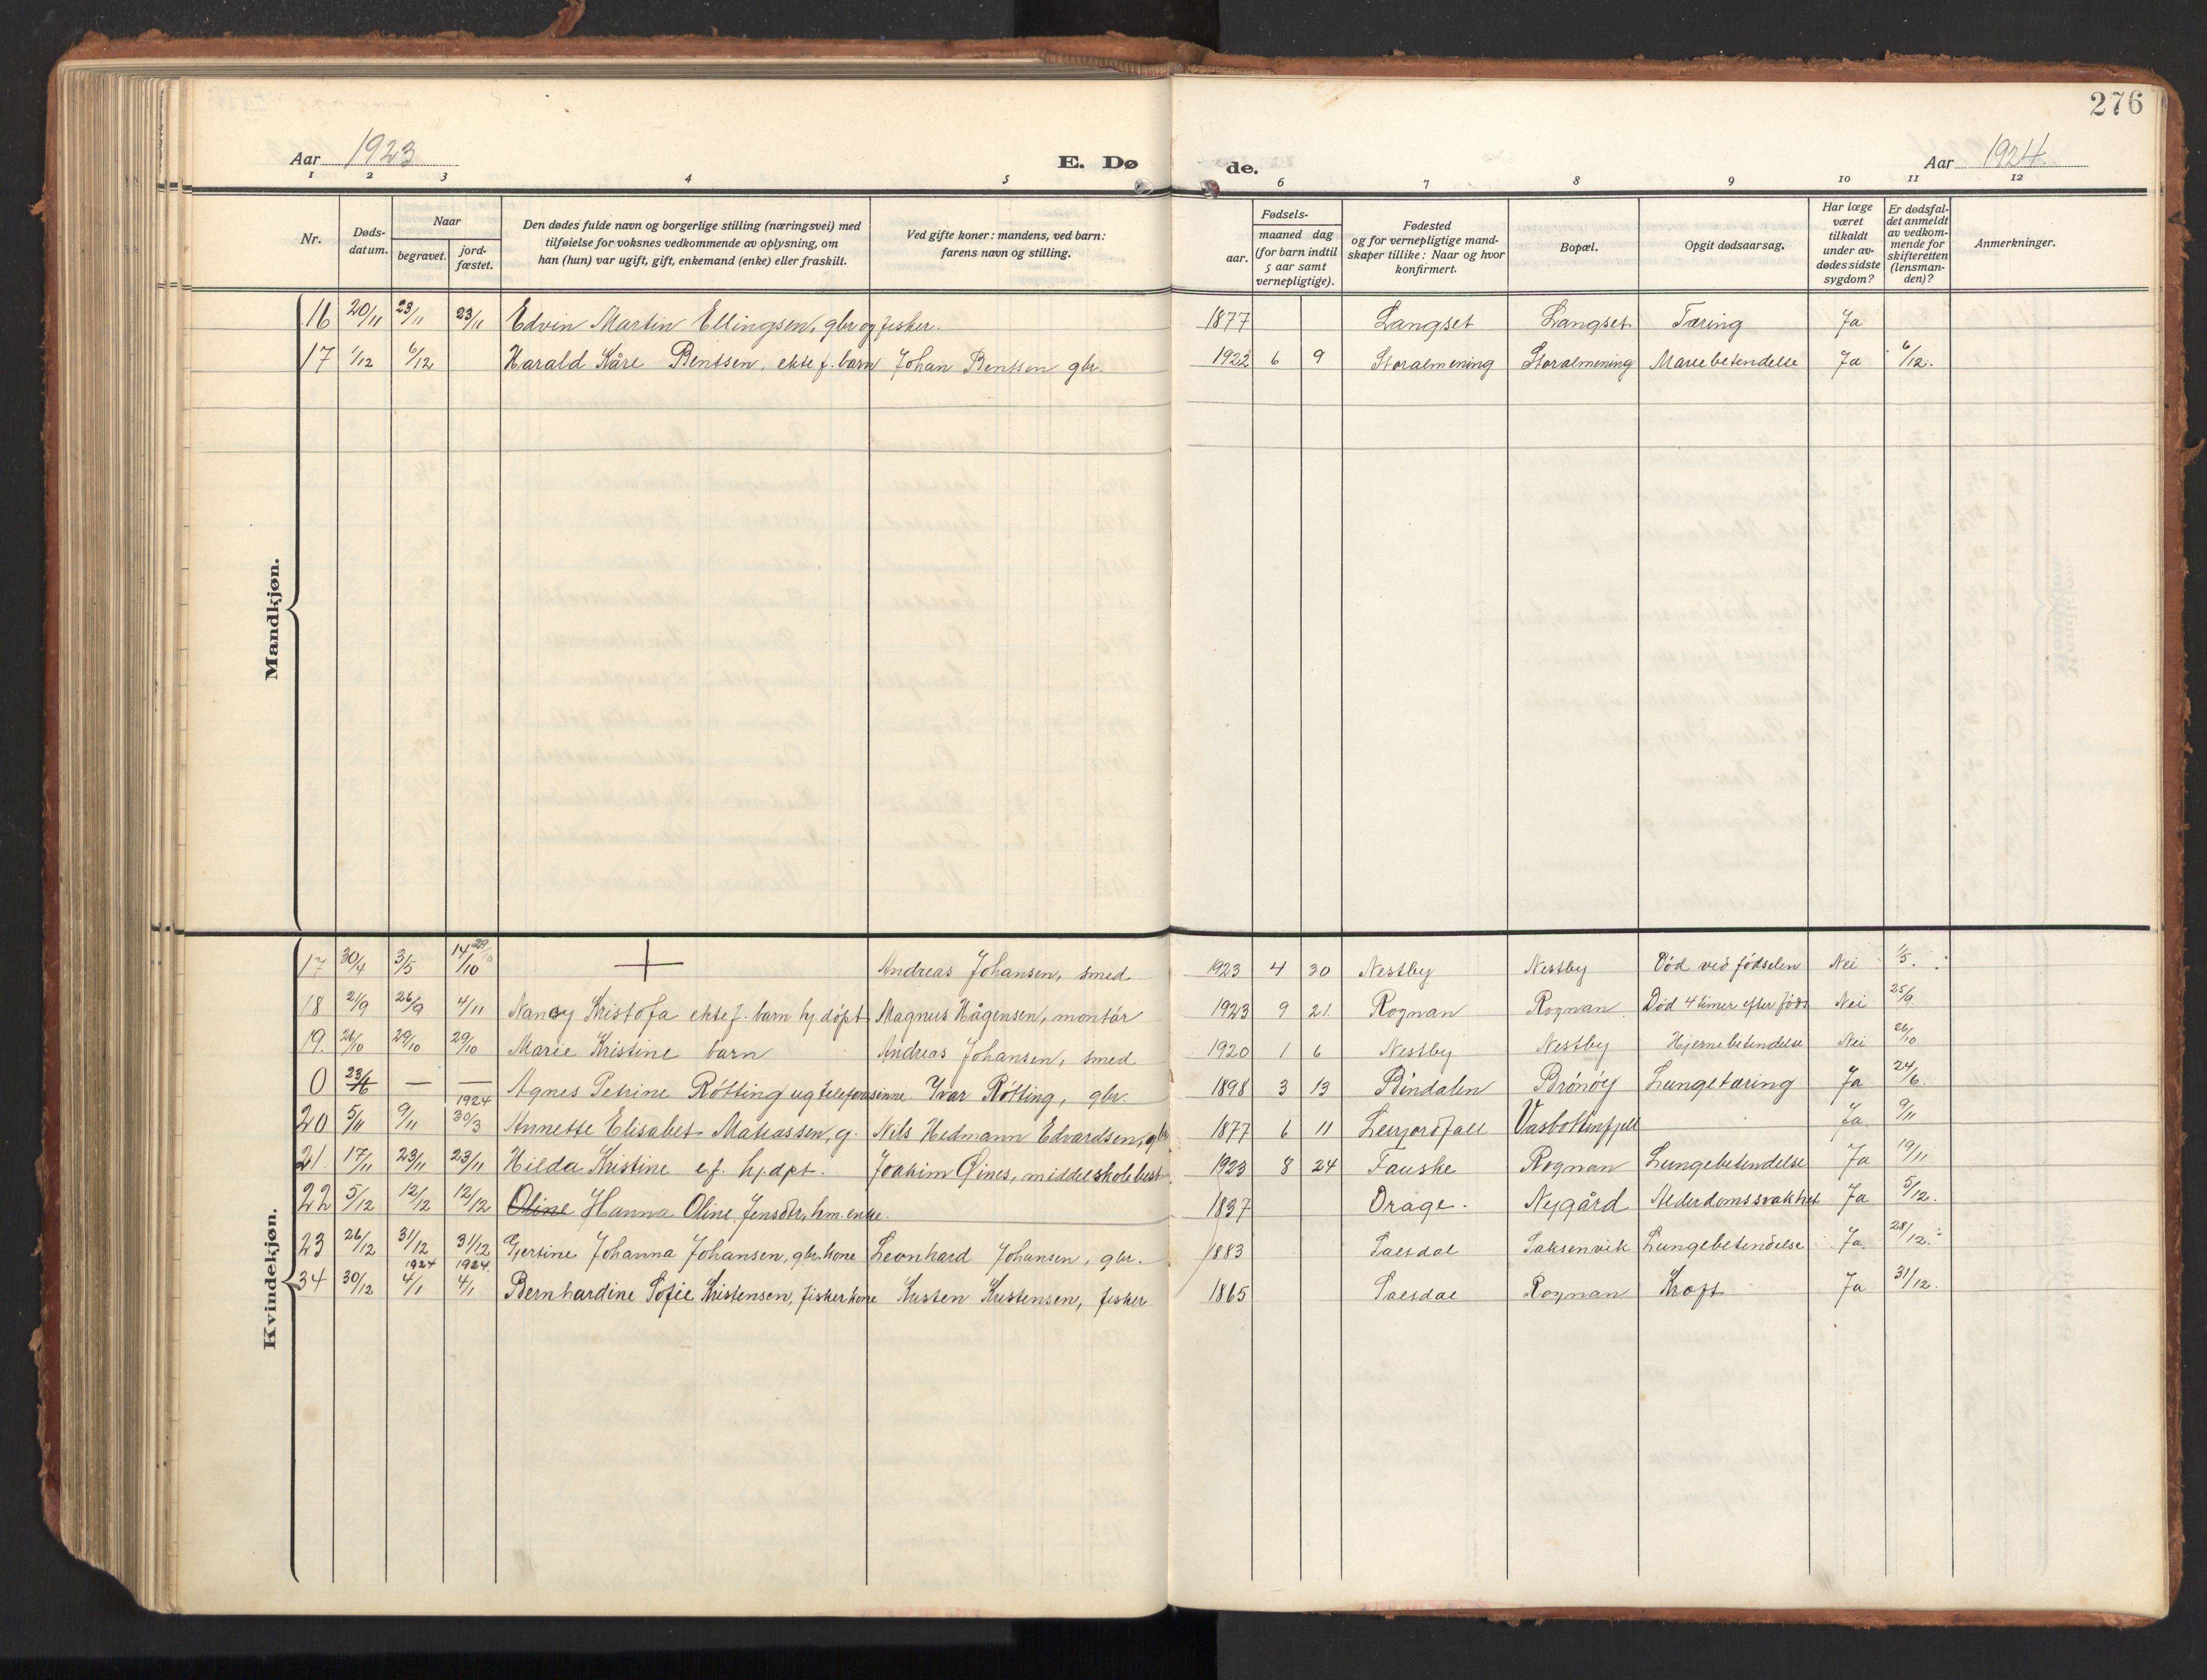 276
Aar 1923 E. Dø de. Aar 1924
1 2 3 4 5 6 7 8 9 10 11 12
Nr.
Døds-
datum.
Naar
begravet.
jord-
fæstet.
Den dødes fulde navn og borgerlige stilling (næringsvei) med
tilføielse for voksnes vedkommende av oplysning, om
han (hun) var ugift, gift, enkemand (enke) eller fraskilt.
Ved gifte koner: mandens, ved barn:
farens navn og stilling.
Fødsels-
aar.
maaned dag
(for barn indtil
5 aar samt
vernepligtige).
Fødested
og for vernepligtige mand-
skaper tillike: Naar og hvor
konfirmert.
Bopæl.
Opgit dødsaarsag.
Har læge
været
tilkaldt
under av-
dødes sidste
sygdom?
Er dødsfal-
det anmeldt
av vedkom-
mende for
skifteretten
(lensman-
den)?
Anmerkninger.
Mandkjøn.
16 20/11 23/11 23/11 Edvin Martin Ellingsen, gbr og fisker. 1877 Langset Langset Tæring Ja
17 1/12 6/12 Harald Kåre Bentsen, ekte f. barn Johan Bentsen gbr. 1922 6 9 Storalmening Storalmening Mavebetendelse Ja 6/12.
Kvindekjøn.
17 30/4 3/5 14/10 29/10 + Andreas Johansen, smed 1923 4 30 Nestby Nestby Död ved födselen Nei 1/5.
18 21/9 26/9 4/11 Nancy Kristofa ekte f. barn hj. döpt Magnus Hågensen, montör 1923 9 21. Rognan Rognan Död 4 timer efter föds Nei 25/9
19. 29/10 29/10 Marie Kristine barn Andreas Johansen, smed 1920 1 6 Nestby Nestby Hjernebetendelse Nei 26/10.
0 23/6 — — Agnes Petrine Rötting ug telefonsinne. Ivar Rötting, gbr. 1898 3 13 Bindalen Brönöy Lungetæring Ja 24/6.
20 5/11 9/11 1924 30/3 Annette Elisabet Mateassen, g. Nils Hedmann Edvardsen, gbr 1877 6 11 Leirjordfall Vasbottenfjell Ja 9/11
21. 17/11 23/11 23/11 Hilda Kristine e.f. hj.dpt. Joakim Öines, middelskolebest. 1923 8 24 Fauske Rognan Lungebetendelse Ja 19/11
22 5/12 12/12 12/12 Oline Hanna Oline Jensdtr, hm. enke. 1837 Drage. Nygård Alderdomssvakhet Ja 5/12.
23 26/12 31/12 31/12 Gjertine Johanna Johansen, gbr.kone Leonhard Johansen, gbr. 1883 Saltdal Saksenvik Lungebetendelse Ja. 28/12.
34 30/12 1924 4/1 1924 4/1 Bernhardine Sofie Kristensen, fiskerkone Kristen Kristensen, fisker 1865 Saltdal Rognan Kræft Ja 31/12.